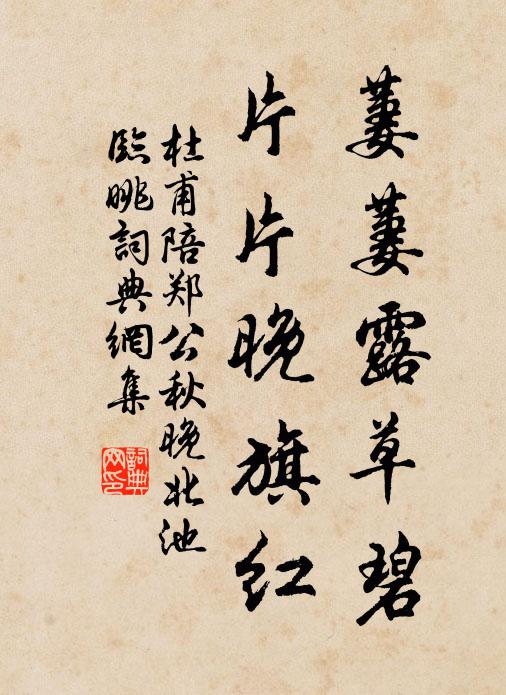 萋萋露草碧
片片晚旗红
杜甫陪郑公秋晚北池
臨眺詞典網集
詞典
网印